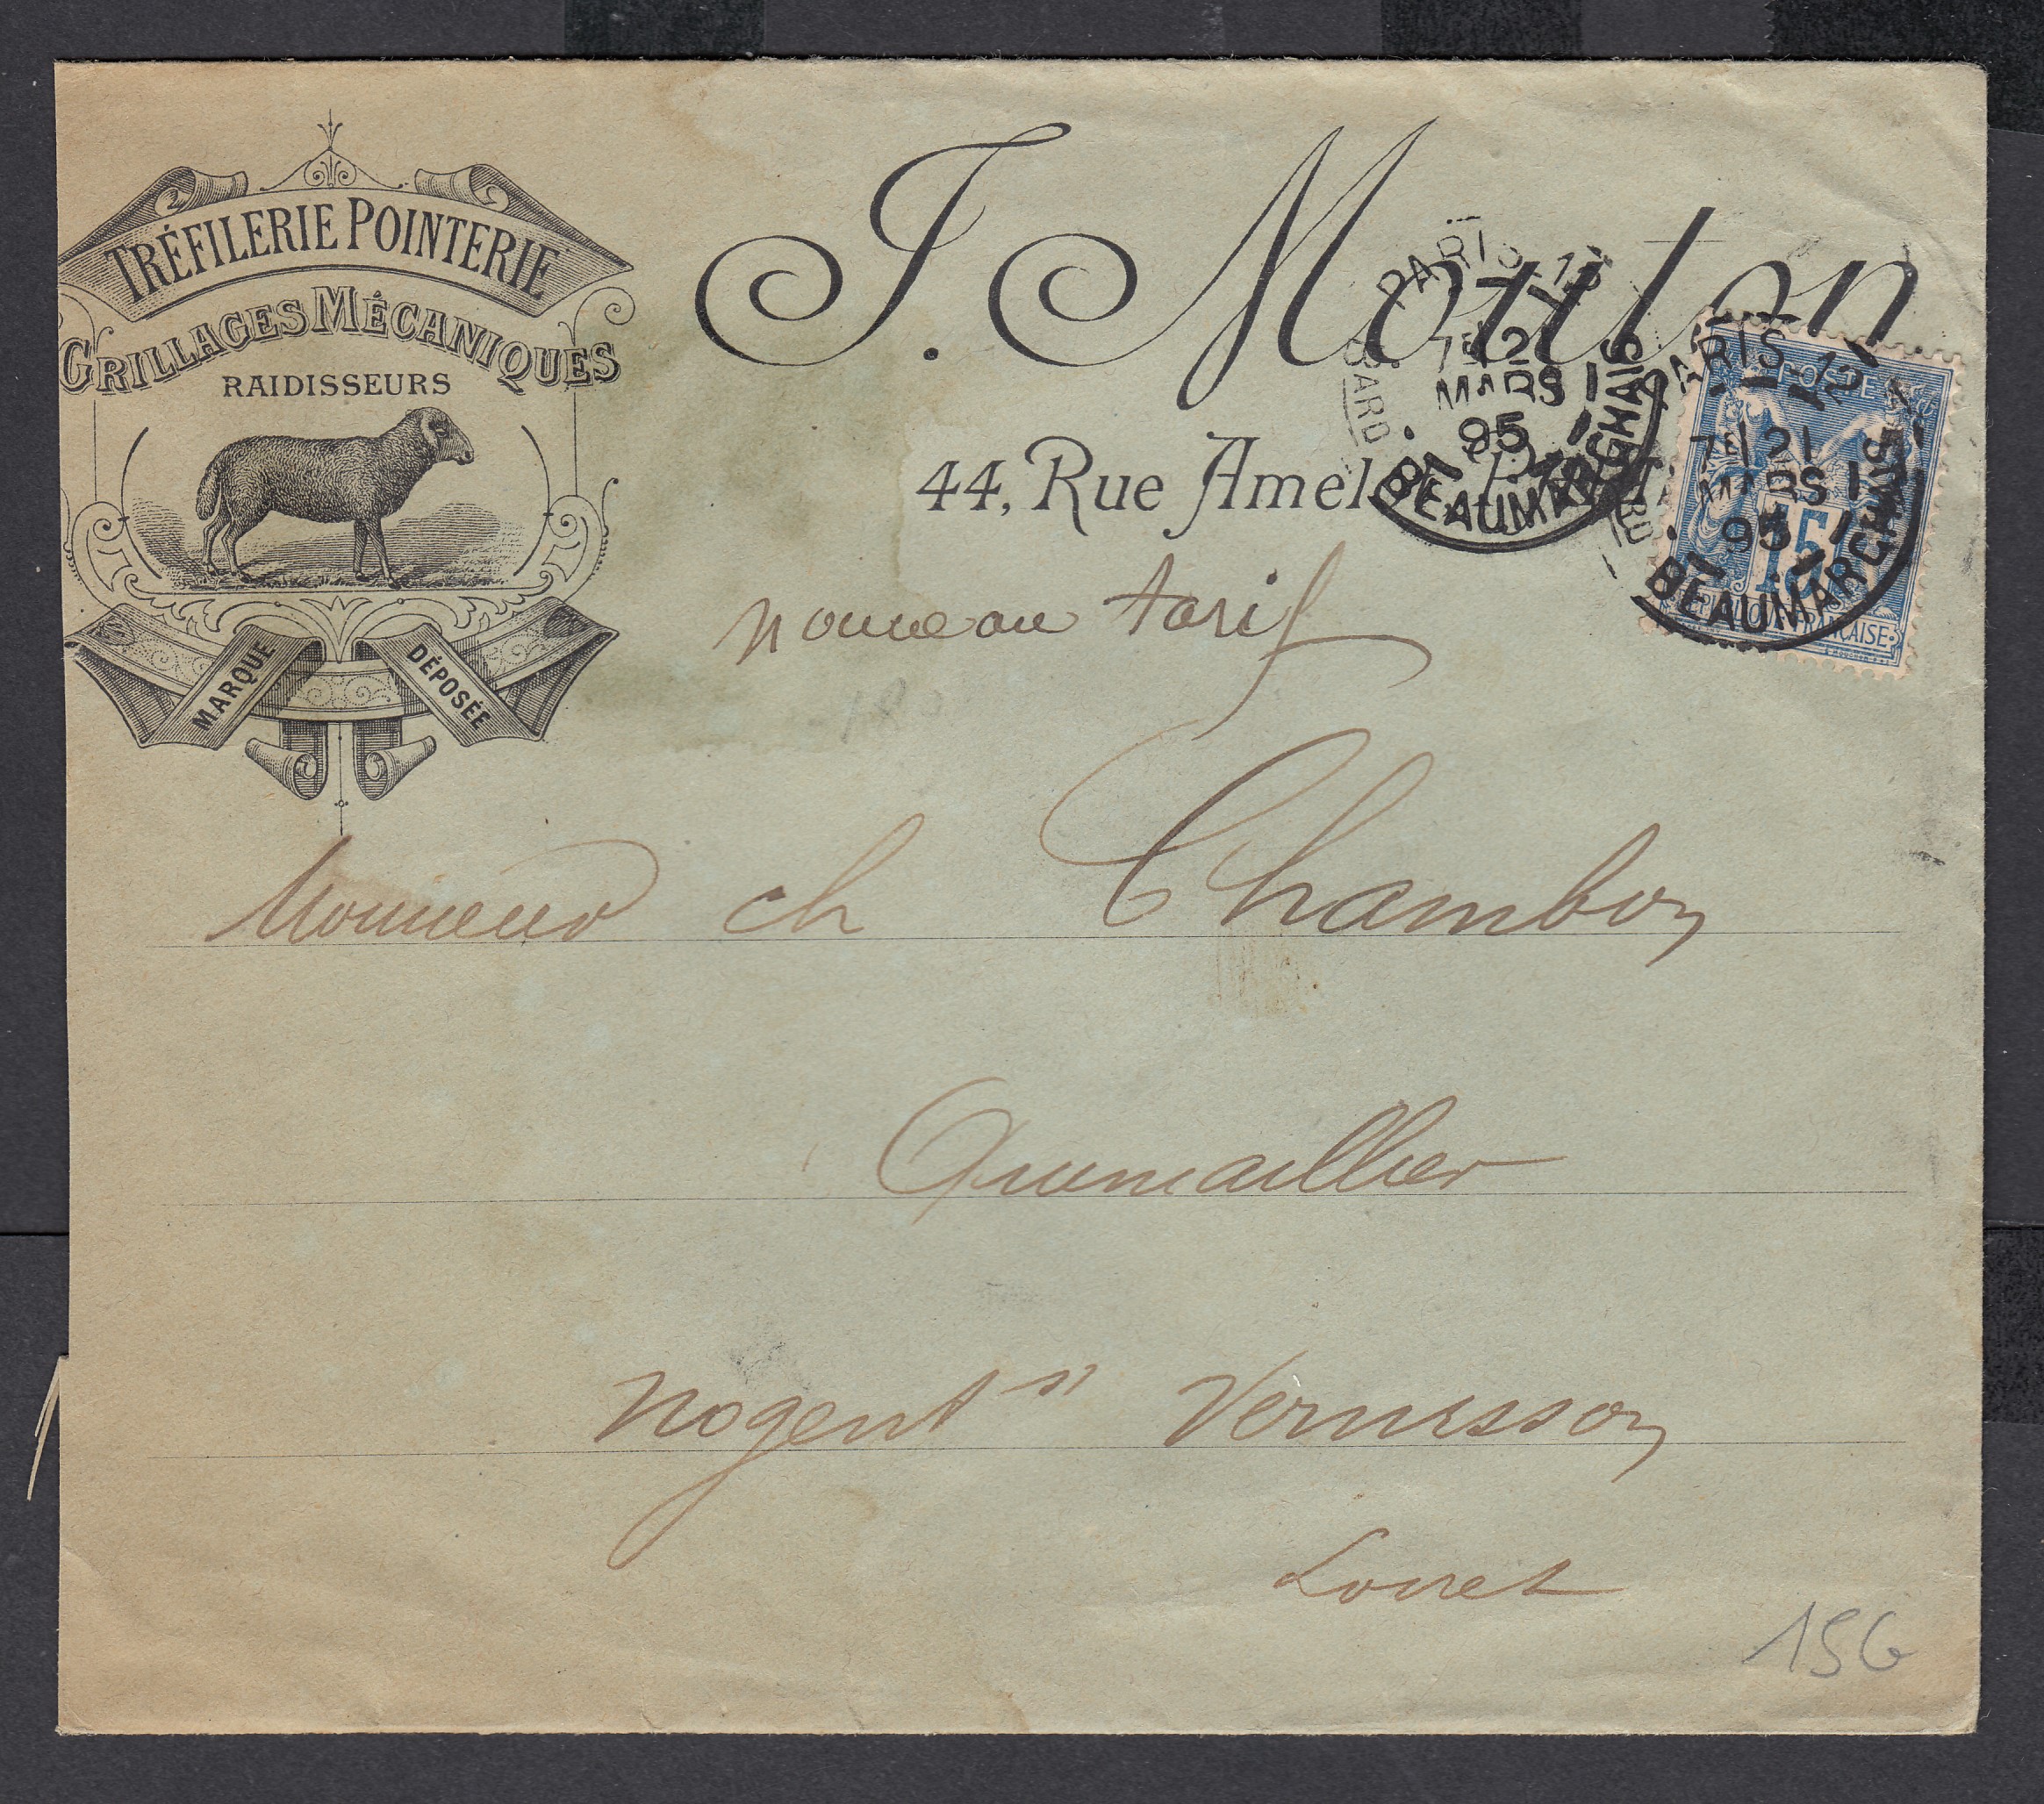 TRÉFILERIE POINTERIE
GRILLAGES MÉCANIQUES
RAIDISSEURS
MARQUE DÉPOSÉE
J. Mouton
44, Rue Amel
PARIS-15
7E 21
MARS
95
BEAUMARCHAIS
PARIS-15
7E 21
MARS
95
BEAUMARCHAIS
POSTE
15
REPUBLIQUE FRANÇAISE
nouveau tarif
Monsieur ch Chambon
Quincaillier
Nogent s/ Vernisson
Loiret
15G